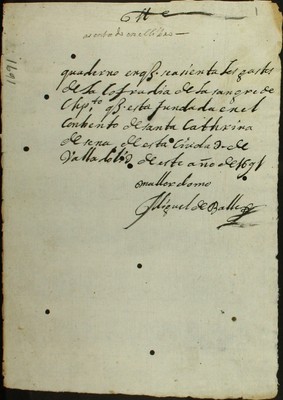 1
1691
quaderno en q̃ se asienta los gastos
de la Cofradia de la sangre de
Chpto q̃ esta fundada en el
Conbento de santa Cathrina
de sena de esta Ciudad de
Valladolid de este año de 1691
mallordomo
Miguel de Balle